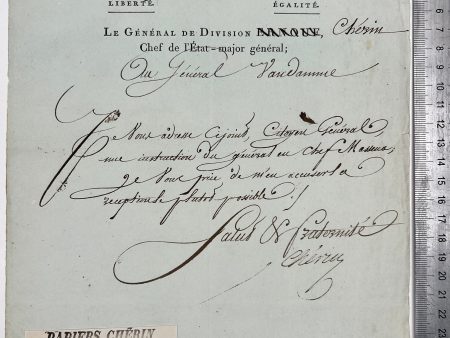 LIBERTÉ. ÉGALITÉ.
Le Général de Division Chérin
Chef de l'État-major général;
Au Général Vandamme
Je Vous adresse Cijoint, Citoyen Général,
une instruction du général en Chef Massena,
Je Vous prie de m'en accuser la
reception le plutot possible !
Salut & fraternité
Chérin
PAPIERS CHÉRIN
7 8 9 10 11 12 13 14 15 16 17 18 19 20 21 22 23